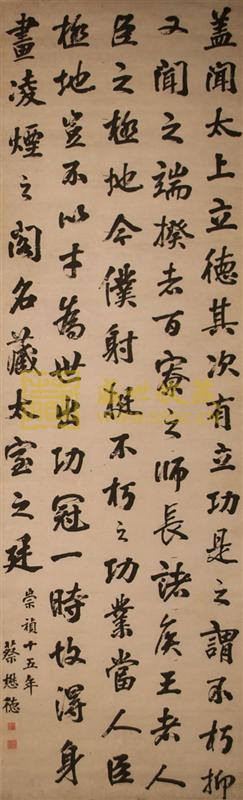 盖闻太上立德其次有立功是之谓不朽抑
又闻之端揆者百寮之师长诸侯王者人
臣之极地今仆射挺不朽之功業當人臣
極地豈不以才為世出功冠一時故得身
畫凌煙之阁名藏太室之廷
崇祯十五年
蔡懋德